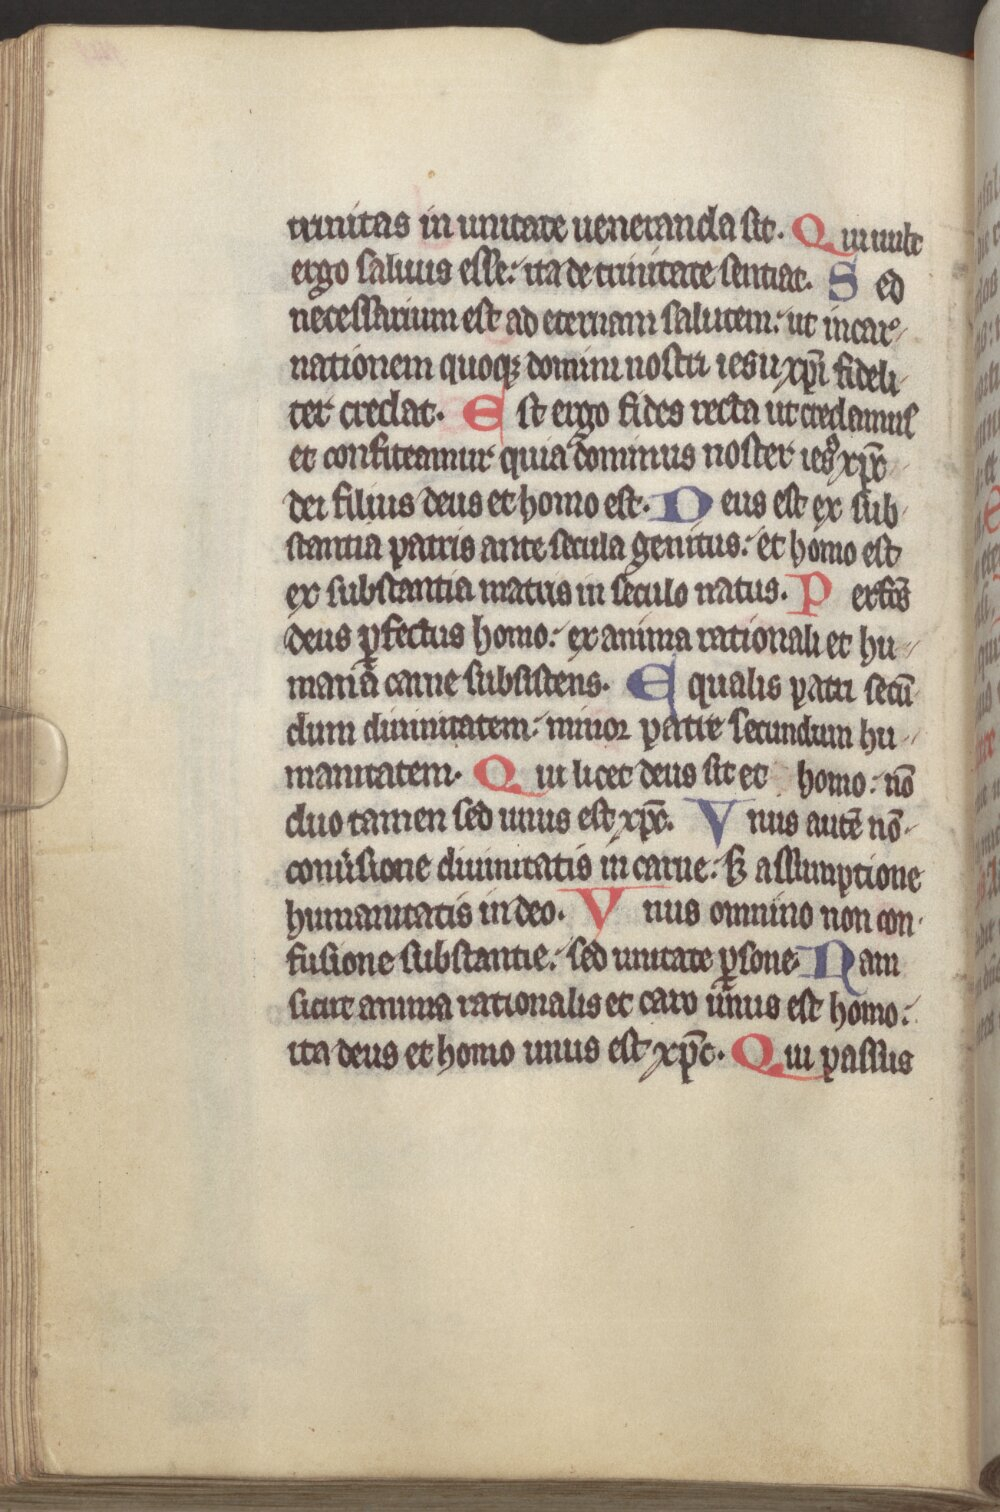 trinitas in unitate ueneranda sit. Qui uult
ergo saluus esse: ita de trinitate sentiat. Sed
necessarium est ad eternam salutem: ut incar-
nationem quoqȝ domini nostri iesu xp̅i fideli-
ter credat. Est ergo fides recta ut credamus
et confiteamur quia dominus noster ies᷒ xp̅c
dei filius deus et homo est. Deus est ex sub-
stantia patris ante secula genitus: et homo est
ex substantia matris in seculo natus. Perfc̅s
deus ꝑfectus homo: ex anima rationali et hu-
mana carne subsistens. Equalis patri secū-
dum diuinitatem: minor patre secundum hu-
manitatem. Qui licet deus sit et homo: nō
duo tamen sed unus est xp̅c. Vnus autē nō
conu̾sione diuinitatis in carne: sꝫ assumptione
humanitatis in deo. Vnus omnino non con-
fusione substantie: sed unitate ꝑsone. Nam
sicut anima rationalis et caro unus est homo:
ita deus et homo unus est xp̅c. Qui passus